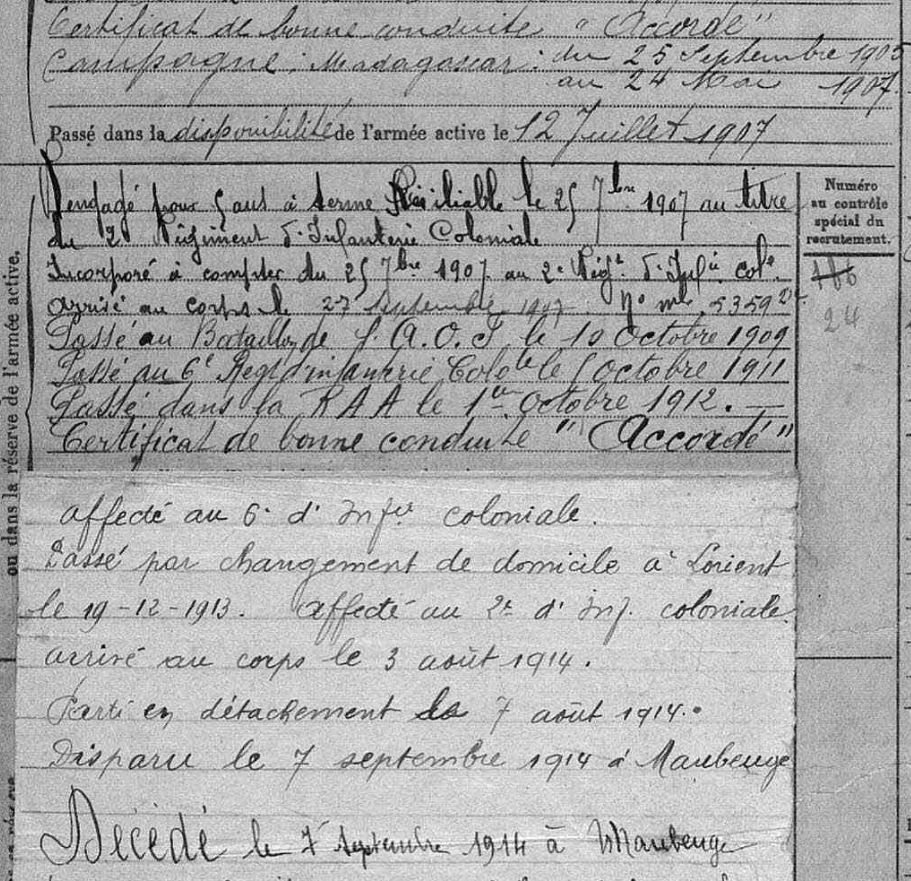 Certificat de bonne conduite "Accordé"
Campagne: Madagascar: du 25 Septembre 1905
au 24 Mai 1907.
Passé dans la disponibilité de l'armée active le 12 Juillet 1907
Rengagé pour 5 ans à terme Résiliable le 25 7bre 1907 au titre
du 2e Régiment d'Infanterie Coloniale
Incorporé à compter du 25 7bre 1907 au 2e Régt d'Infie cole.
Arrivé au corps le 27 Septembre 1907. No mle 5359
Passé au Bataillon de l'A.O.F. le 10 Octobre 1909
Passé au 6e Regt d'infanterie Colole le 5 Octobre 1911
Passé dans la R A A le 1er Octobre 1912. —
Certificat de bonne conduite "Accordé"
Numéro
au contrôle
spécial du
recrutement.
24
ou dans la réserve de l'armée active.
affecté au 6e d' Infie coloniale.
Passé par changement de domicile à Lorient
le 19-12-1913. Affecté au 2e d' Inf. coloniale.
arrivé au corps le 3 août 1914.
Parti en détachement le 7 août 1914.
Disparu le 7 septembre 1914 à Maubeuge
Décédé le 7 Septembre 1914 à Maubeuge